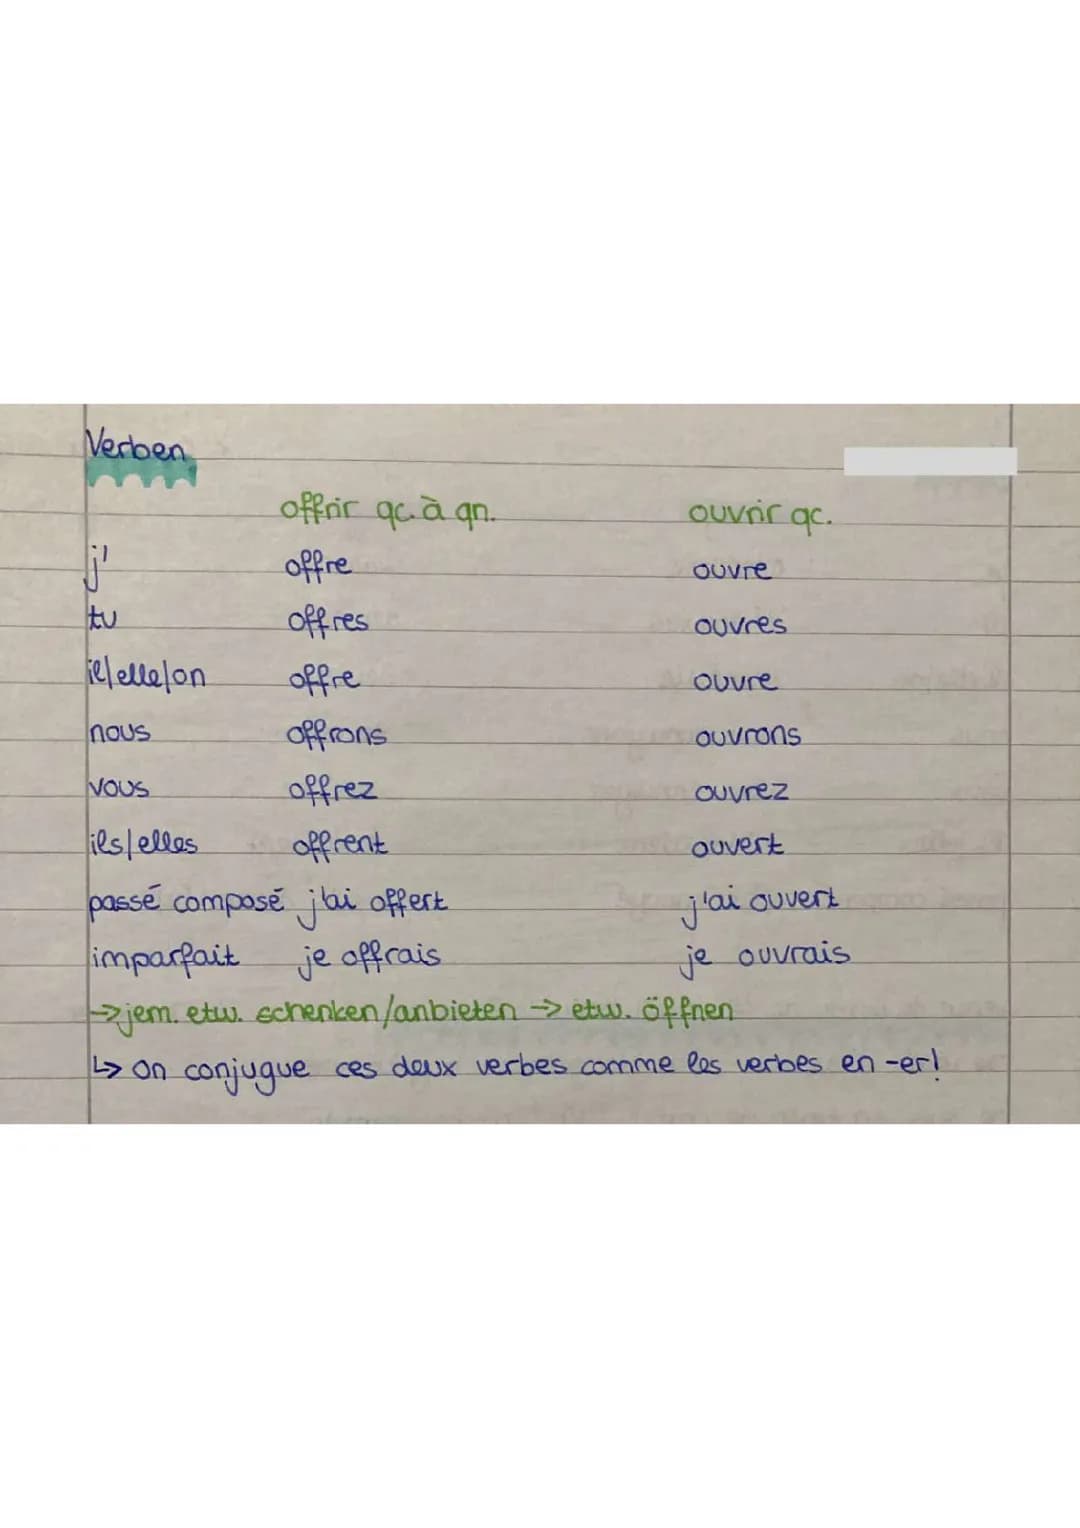 Verben
offrir qc. à qn. ouvrir qc.
j' offre ouvre
tu offres ouvres
il/elle/on offre ouvre
nous offrons ouvrons
vous offrez ouvrez
ils/elles offrent ouvert
passé composé j'ai offert j'ai ouvert
imparfait je offrais je ouvrais
→ jem. etw. schenken/anbieten → etw. öffnen
↳ on conjugue ces deux verbes comme les verbes en -er!